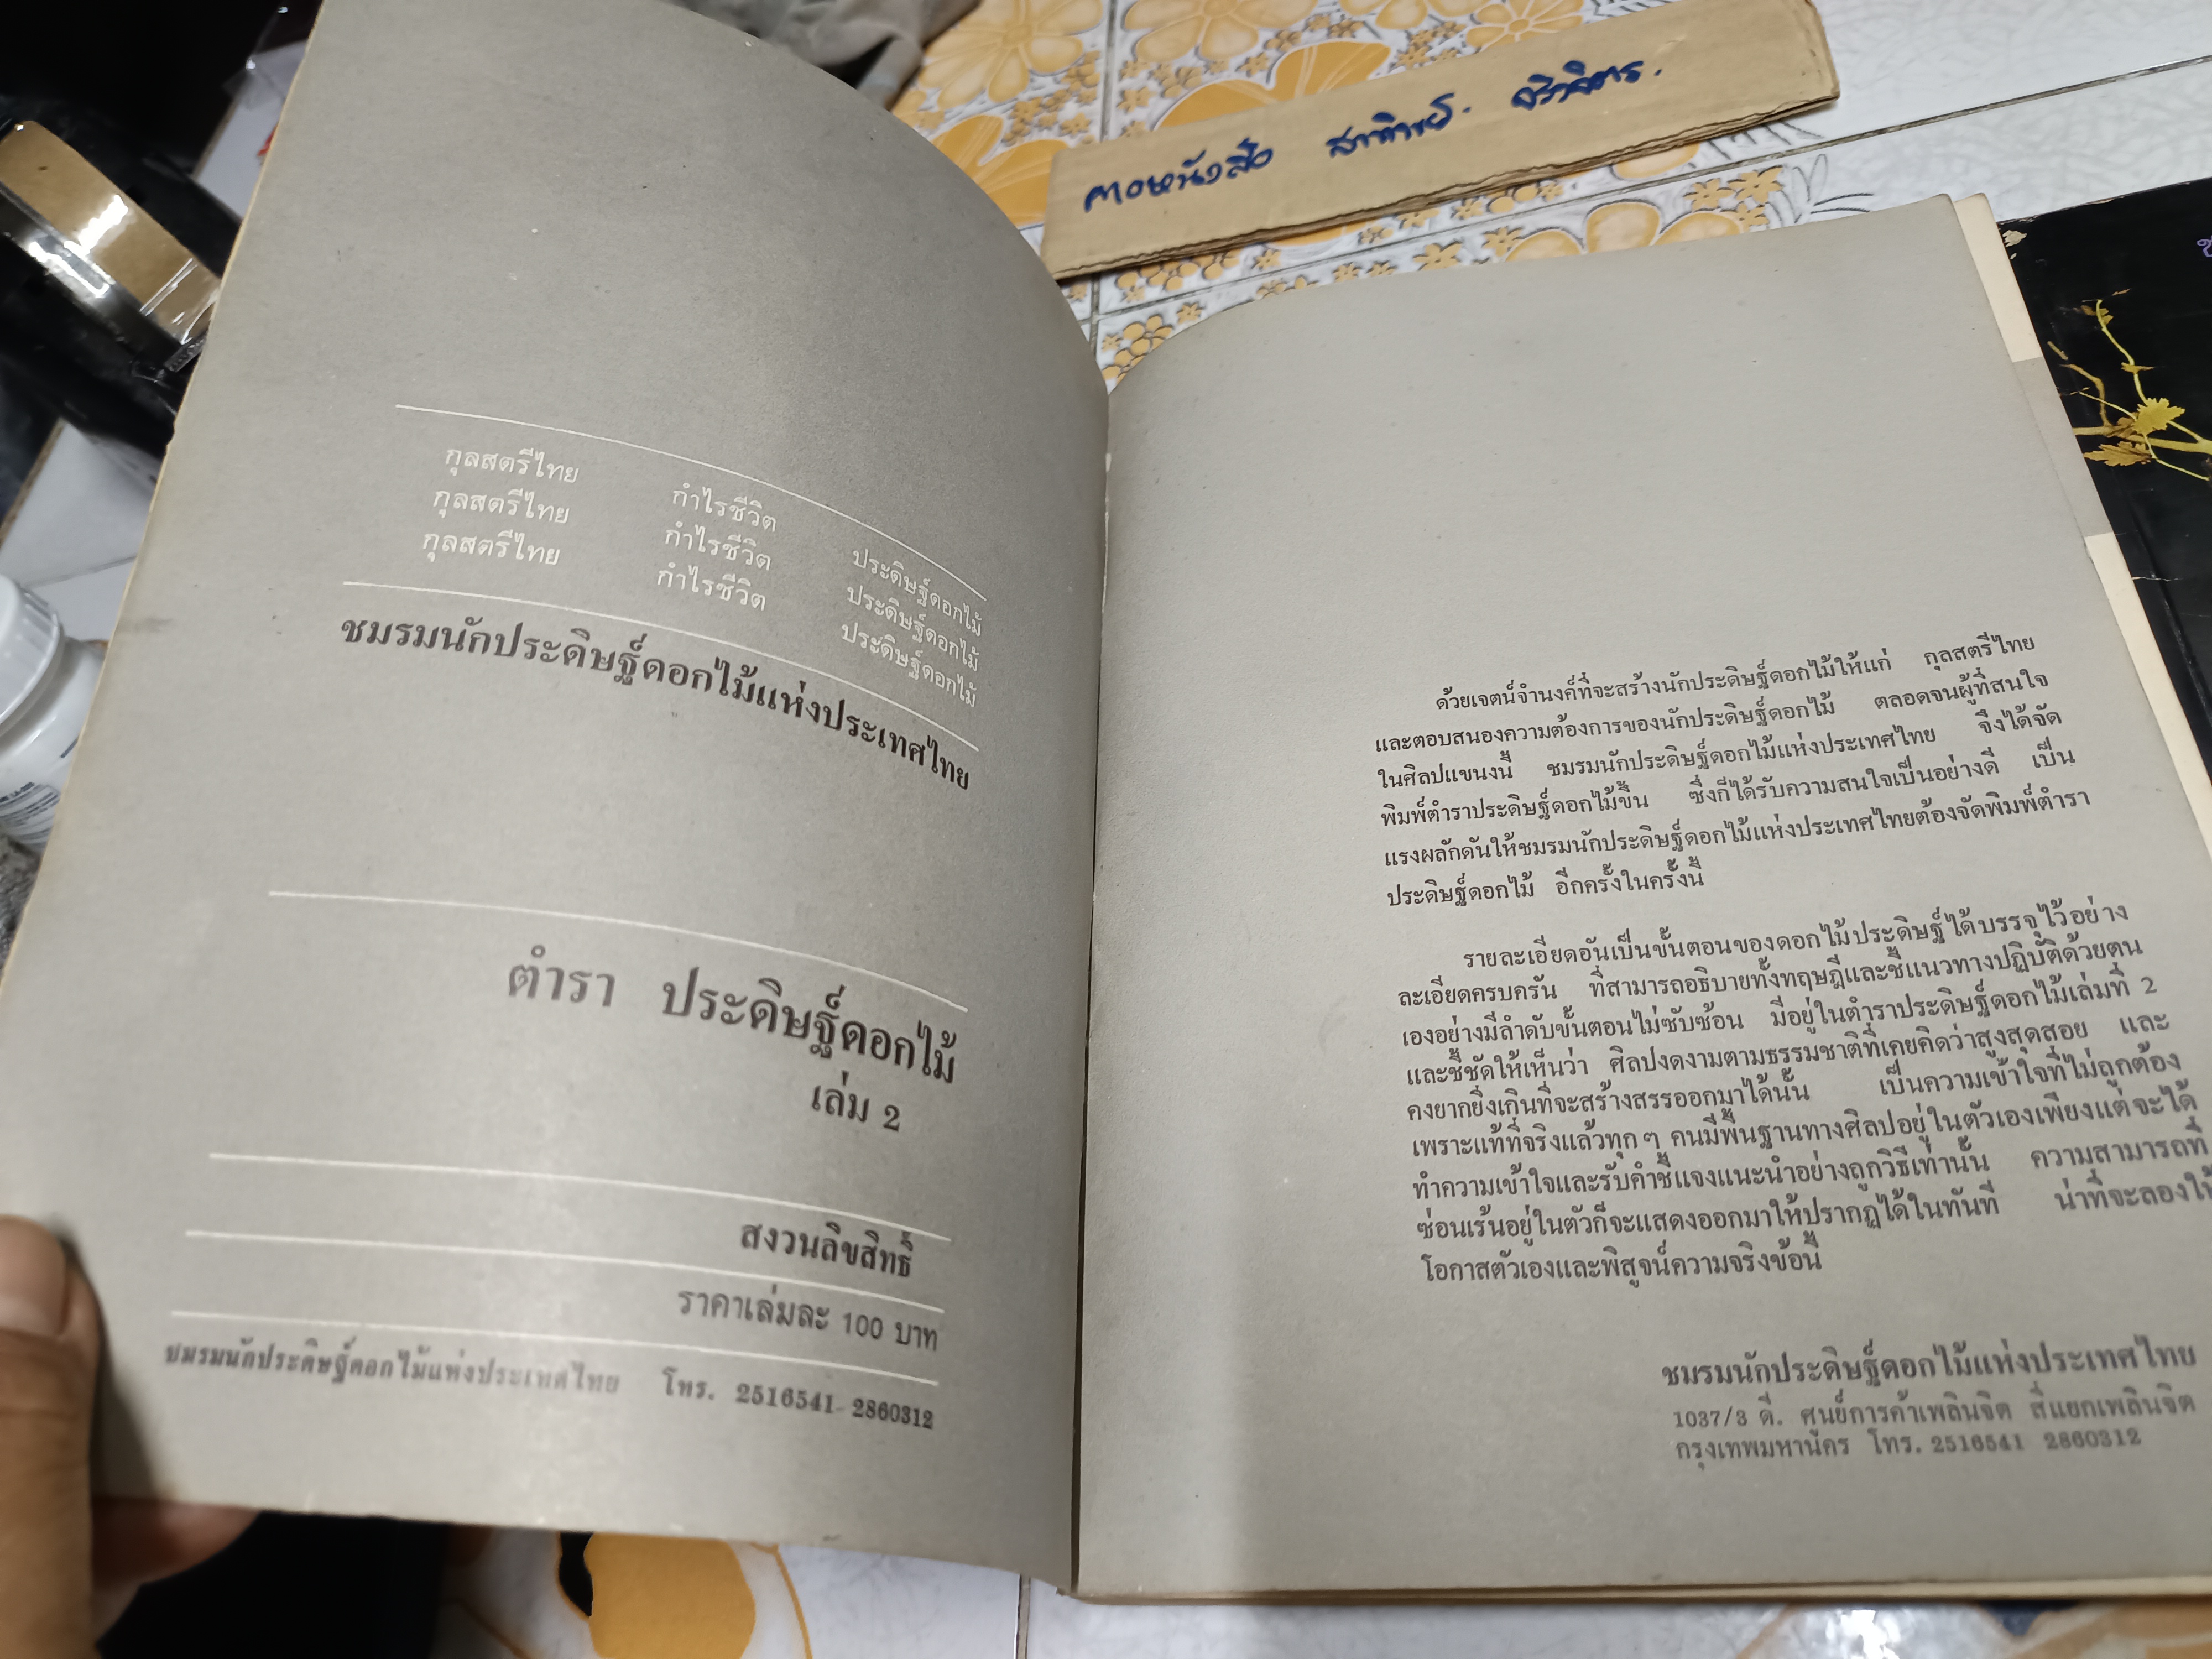 กุลสตรีไทย กำไรชีวิต ประดิษฐ์ดอกไม้
กุลสตรีไทย กำไรชีวิต ประดิษฐ์ดอกไม้
กุลสตรีไทย กำไรชีวิต ประดิษฐ์ดอกไม้
ชมรมนักประดิษฐ์ดอกไม้แห่งประเทศไทย
ตำรา ประดิษฐ์ดอกไม้
เล่ม 2
สงวนลิขสิทธิ์
ราคาเล่มละ 100 บาท
ชมรมนักประดิษฐ์ดอกไม้แห่งประเทศไทย โทร. 2516541-2860312
ด้วยเจตน์จำนงค์ที่จะสร้างนักประดิษฐ์ดอกไม้ให้แก่ กุลสตรีไทย
และตอบสนองความต้องการของนักประดิษฐ์ดอกไม้ ตลอดจนผู้ที่สนใจ
ในศิลปแขนงนี้ ชมรมนักประดิษฐ์ดอกไม้แห่งประเทศไทย จึงได้จัด
พิมพ์ตำราประดิษฐ์ดอกไม้ขึ้น ซึ่งก็ได้รับความสนใจเป็นอย่างดี เป็น
แรงผลักดันให้ชมรมนักประดิษฐ์ดอกไม้แห่งประเทศไทยต้องจัดพิมพ์ตำรา
ประดิษฐ์ดอกไม้ อีกครั้งในครั้งนี้
รายละเอียดอันเป็นขั้นตอนของดอกไม้ประดิษฐ์ได้บรรจุไว้อย่าง
ละเอียดครบครัน ที่สามารถอธิบายทั้งทฤษฎีและชี้แนวทางปฏิบัติด้วยตน
เองอย่างมีลำดับขั้นตอนไม่ซับซ้อน มีอยู่ในตำราประดิษฐ์ดอกไม้เล่มที่ 2
และชี้ชัดให้เห็นว่า ศิลปงดงามตามธรรมชาติที่เคยคิดว่าสูงสุดสอย และ
คงยากยิ่งเกินที่จะสร้างสรรออกมาได้นั้น เป็นความเข้าใจที่ไม่ถูกต้อง
เพราะแท้ที่จริงแล้วทุก ๆ คนมีพื้นฐานทางศิลปอยู่ในตัวเองเพียงแต่จะได้
ทำความเข้าใจและรับคำชี้แจงแนะนำอย่างถูกวิธีเท่านั้น ความสามารถที่
ซ่อนเร้นอยู่ในตัวก็จะแสดงออกมาให้ปรากฏได้ในทันที น่าที่จะลองให้
โอกาสตัวเองและพิสูจน์ความจริงข้อนี้
ชมรมนักประดิษฐ์ดอกไม้แห่งประเทศไทย
1037/3 ดี. ศูนย์การค้าเพลินจิต สี่แยกเพลินจิต
กรุงเทพมหานคร โทร. 2516541 2860312